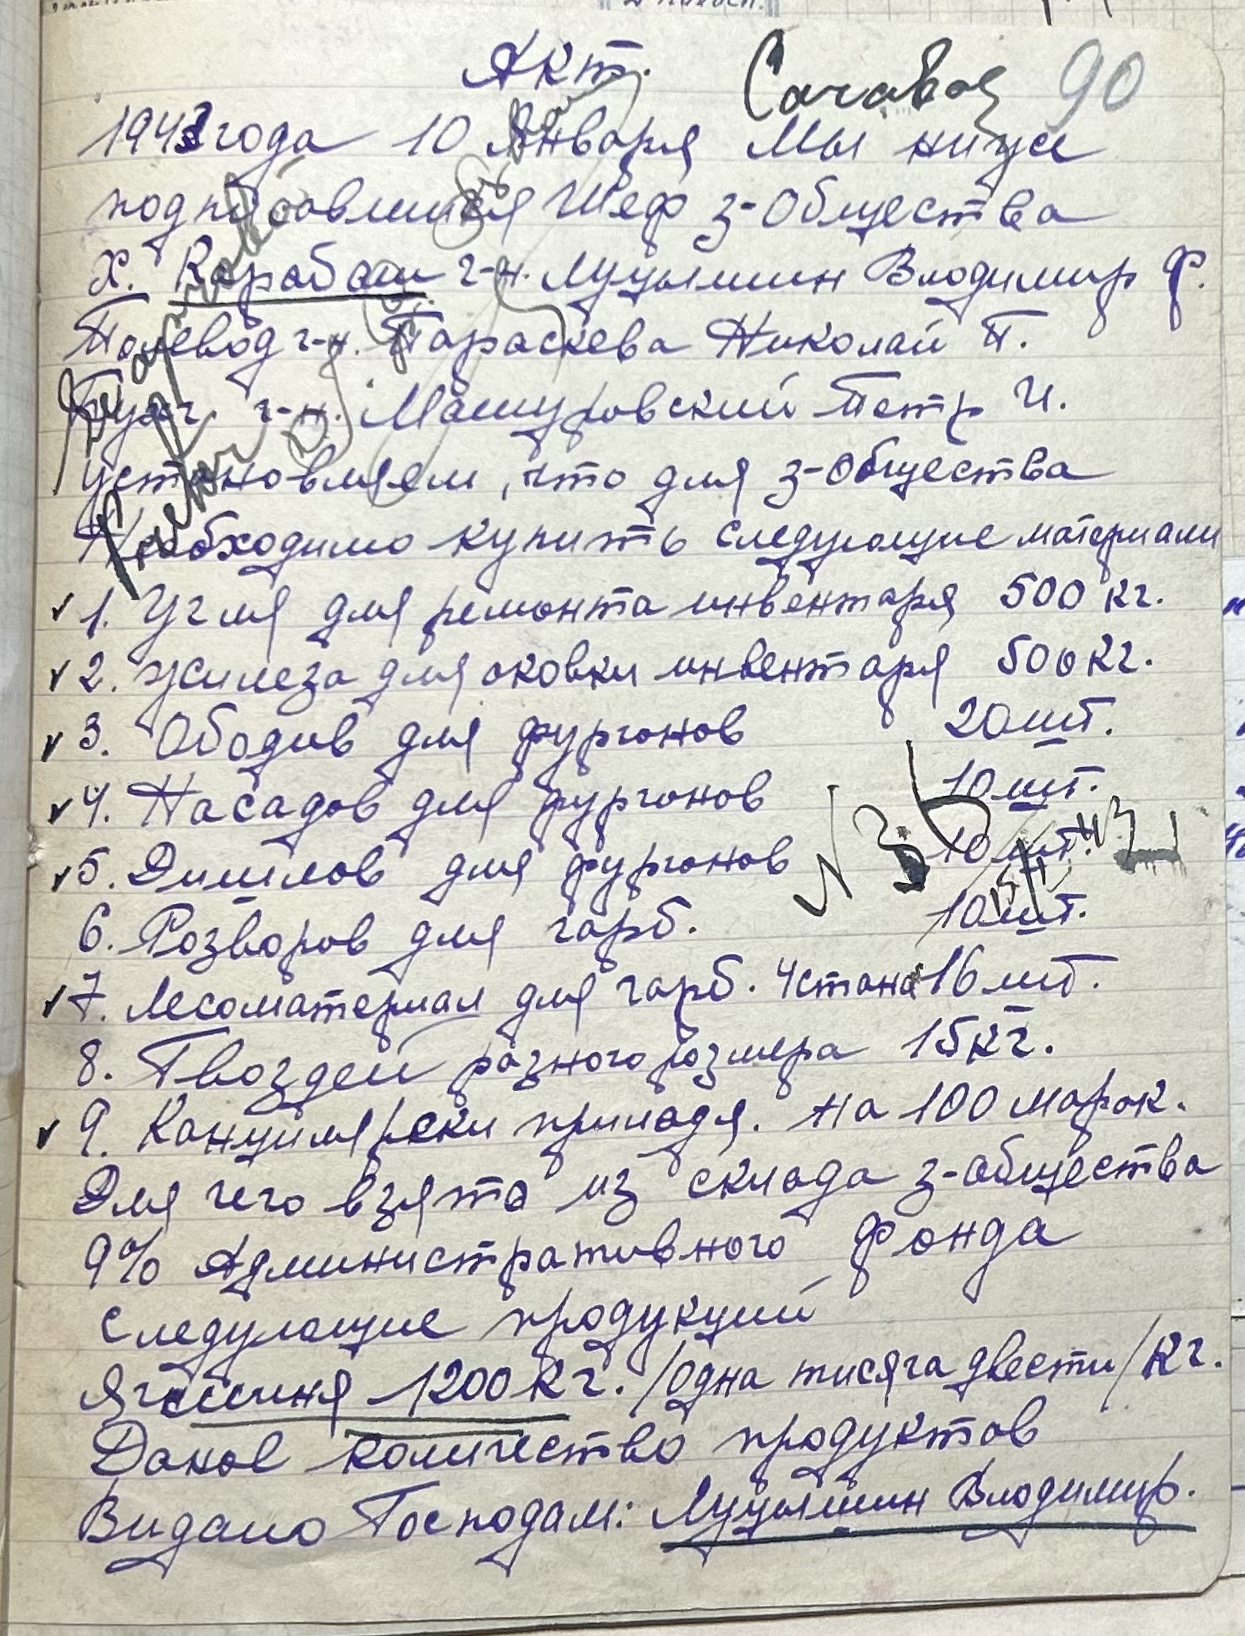 Акт.
90
1943 года 10 Января Мы ниже
подписавшийся Шеф з-Общества
Х. Карабаш г-н. Луцышин Владимир Ф.
Полевод г-н. Параскева Николай П.
Бухг г-н. Машуровский Петр И.
установляем, что для з-общества
Необходимо купить следующие материали
1. Угля для ремонта инвентаря 500 кг.
2. Жилеза для оковки инвентаря 500 кг.
3. Ободив для фургонов 20 шт.
4. Насадов для фургонов 10 шт.
5. Дишлов для фургонов 10 шт.
6. Розворов для гарб. 10 шт.
7. Лесоматериал для гарб. 4 стана 16 шт.
8. Гвоздей разного розмера 15 кг.
9. Канцилярски приладя. на 100 марок.
Для чего взято из склада з-общества
9% Административного фонда
следующие продукций
Ячминя 1200 кг. /одна тисяга двести/ кг.
Даное количество продуктов
Видано Господам: Луцышин Владимир.